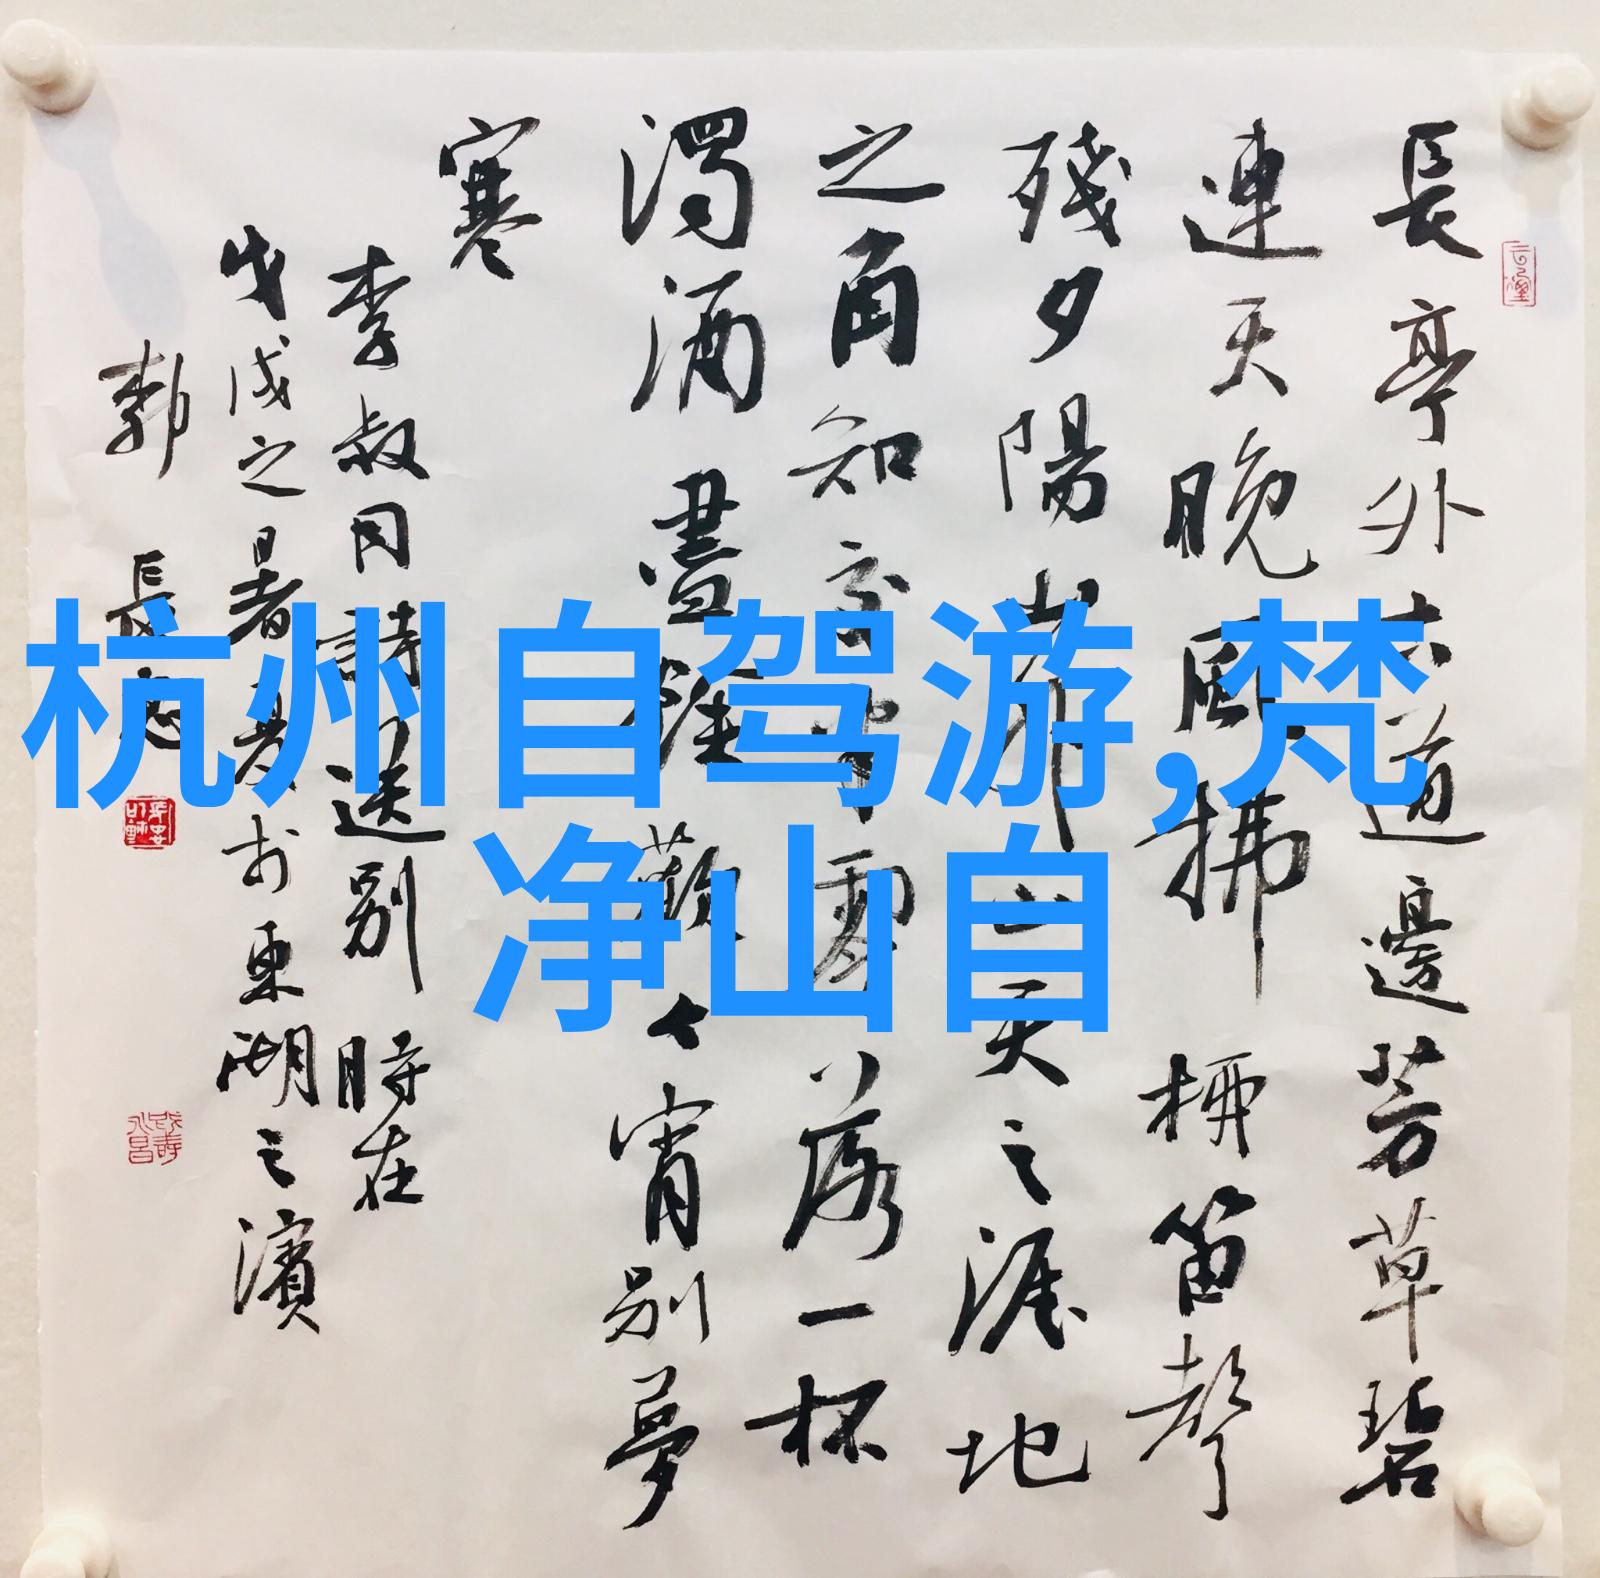 長亭外古道邊芳草碧
連天晚風拂柳笛聲
殘夕陽山外山天之涯地
之角知交半零落一杯
濁酒盡餘歡今宵別夢
寒
李叔同詩送別 時在
戊戌之暑書於東湖之濱
長
杭州自驾游,梵
净山自